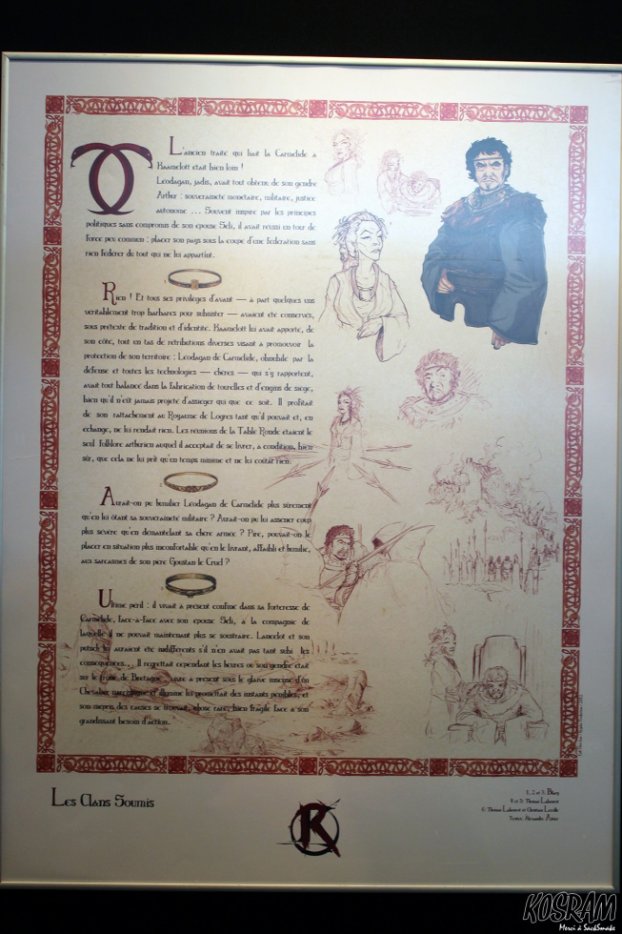 L'ancien traité qui liait la Carmélide à
Kaamelott était bien loin !
Léodagan, jadis, avait tout obtenu de son gendre
Arthur : souveraineté monétaire, militaire, justice
autonome ... Souvent inspiré par les principes
politiques sans compromis de son épouse Séli, il avait réussi un tour de
force peu commun : placer son pays sous la coupe d'une fédération sans
rien fédérer du tout qui ne lui appartint.
Rien ! Et tous ses privilèges d'avant — à part quelques uns
véritablement trop barbares pour subsister — avaient été conservés,
sous prétexte de tradition et d'identité. Kaamelott lui avait apporté, de
son côté, tout un tas de rétributions diverses visant à promouvoir la
protection de son territoire : Léodagan de Carmélide, obnubilé par la
défense et toutes les technologies — chères — qui s'y rapportent,
avait tout balancé dans la fabrication de tourelles et d'engins de siège,
bien qu'il n'eût jamais projeté d'assiéger qui que ce soit. Il profitait
de son rattachement au Royaume de Logres tant qu'il pouvait et, en
échange, ne lui rendait rien. Les réunions de la Table Ronde étaient le
seul folklore arthurien auquel il acceptait de se livrer, à condition, bien
sûr, que cela ne lui prît qu'un temps minime et ne lui coûtât rien.
Aurait-on pu humilier Léodagan de Carmélide plus sûrement
qu'en lui ôtant sa souveraineté militaire ? Aurait-on pu lui asséner coup
plus sévère qu'en démantelant sa chère armée ? Pire, pouvait-on le
placer en situation plus inconfortable qu'en le livrant, affaibli et humilié,
aux sarcasmes de son père Goustan le Cruel ?
Ultime péril : il vivait à présent confiné dans sa forteresse de
Carmélide, face-à-face avec son épouse Séli, à la compagnie de
laquelle il ne pouvait maintenant plus se soustraire. Lancelot et son
putsch lui auraient été indifférents s'il n'en avait pas tant subi les
conséquences... Il regrettait cependant les heures où son gendre était
sur le trône de Bretagne : vivre à présent sous le glaive d'un
Chevalier et illuminé lui promettait des instants pénibles, et
son moyen des causes se trouvait, chose rare, bien fragile face à son
grandissant besoin d'action.
Les Clans Soumis
K
1, 2 et 3: Blury
4 et 5: Thomas Labourot
6: Thomas Labourot et Christian Lerolle
Texte: Alexandre Astier
KOSRAM
Merci à SackSmoke